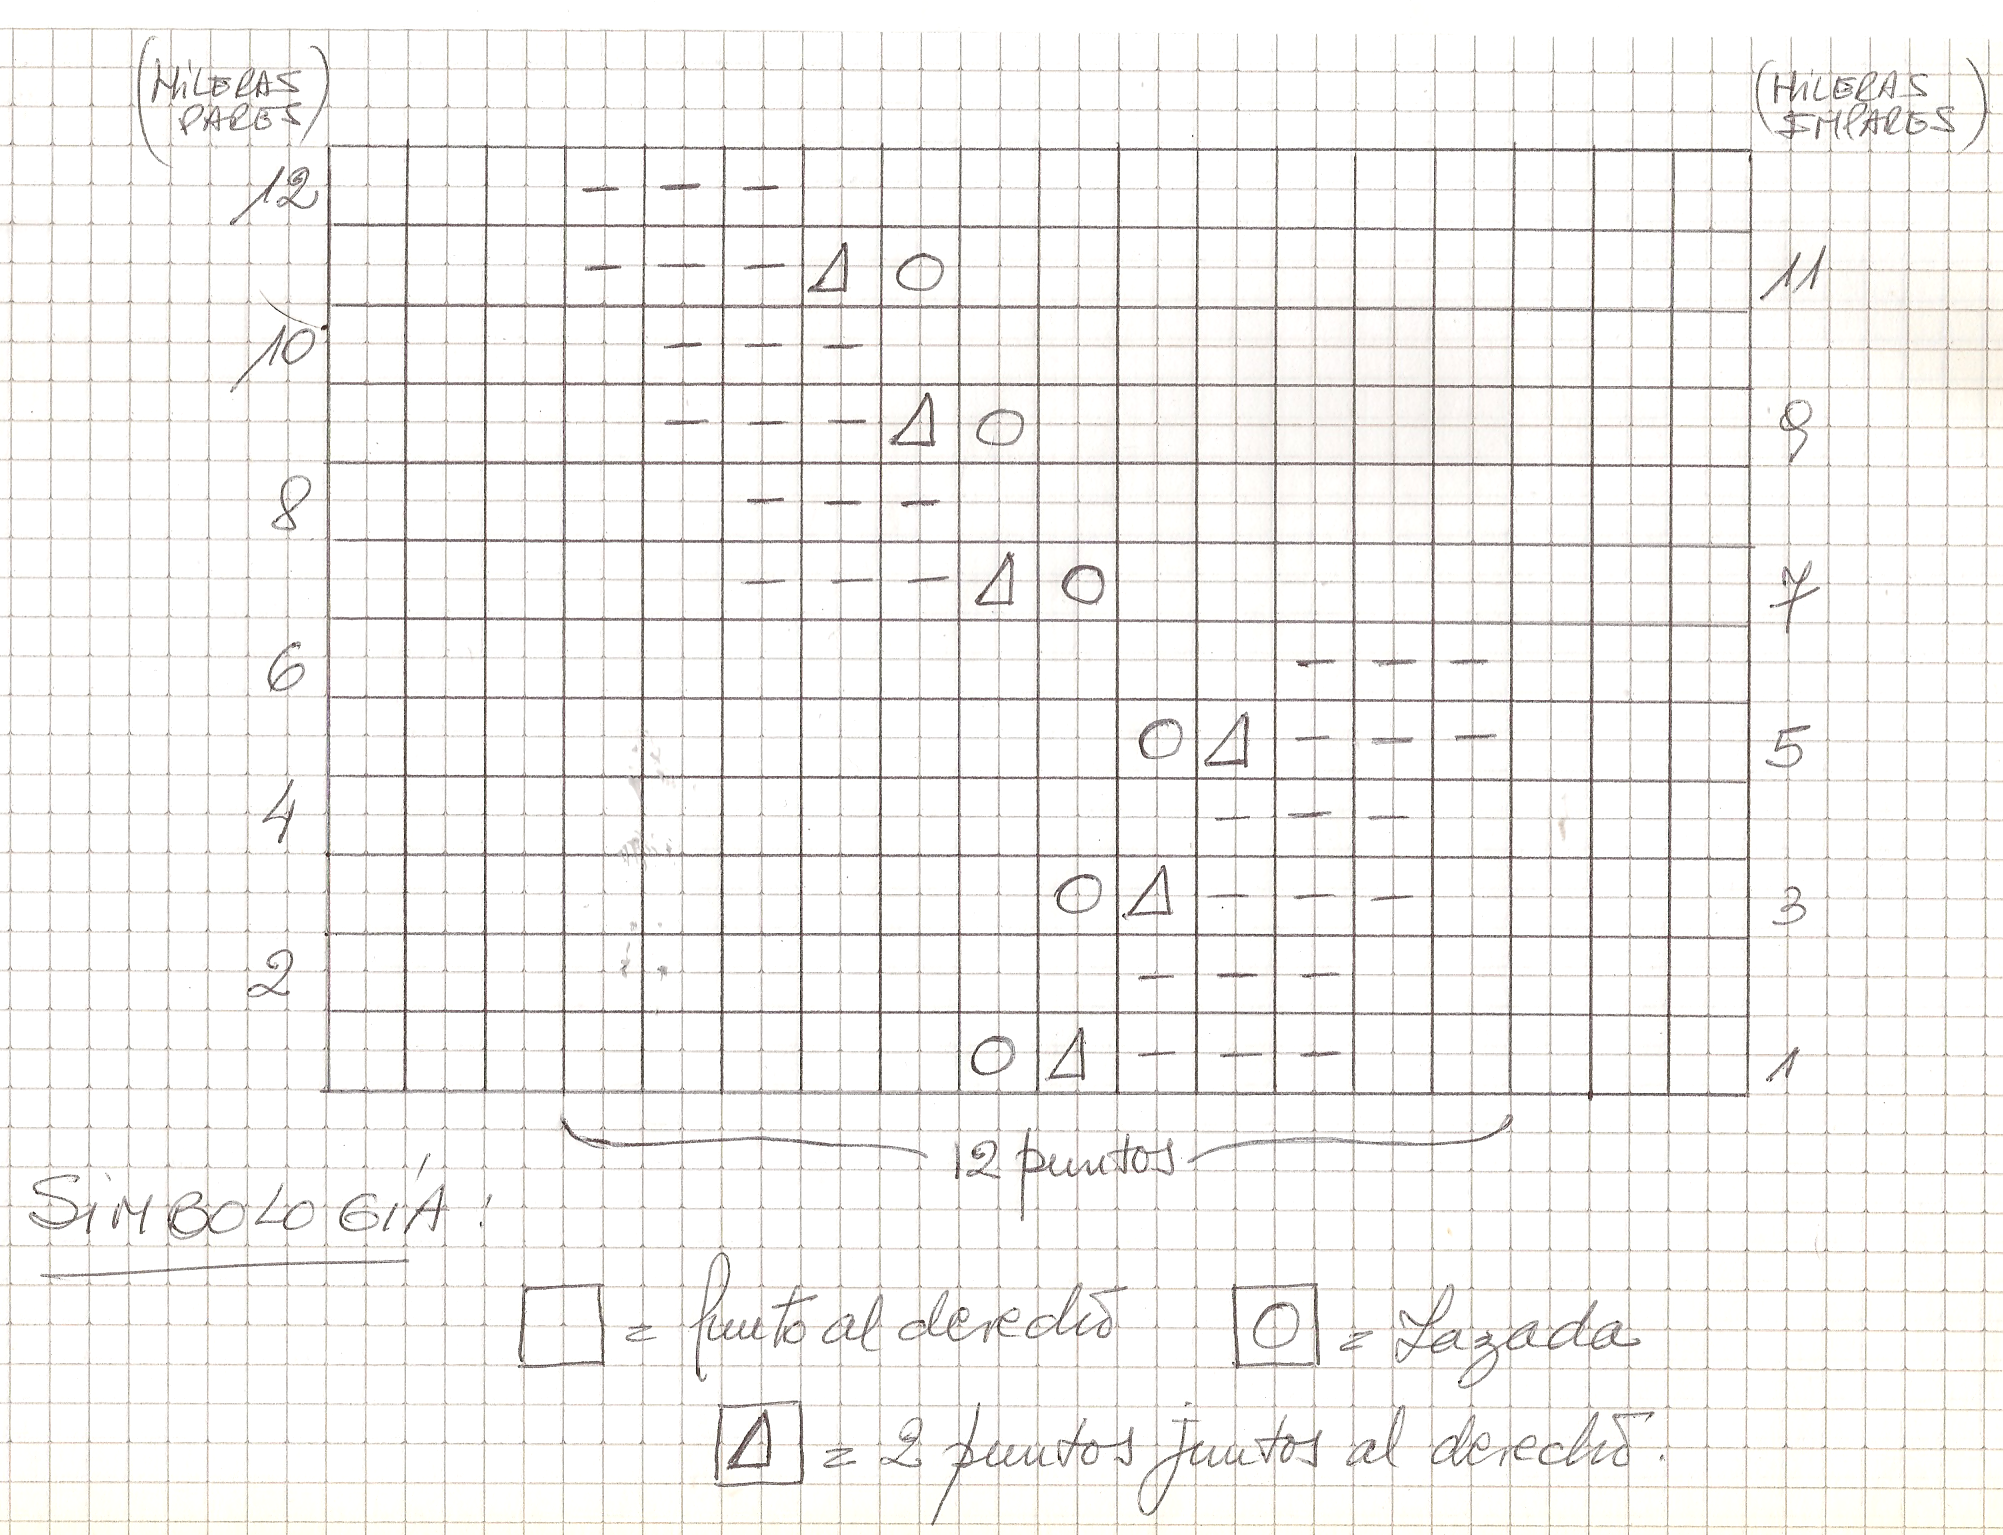 (HILERAS PARES)
(HILERAS IMPARES)
12
11
10
9
8
7
6
5
4
3
2
1
12 puntos
SIMBOLOGIÁ:
= Punto al derecho
= Lazada
= 2 puntos juntos al derecho.